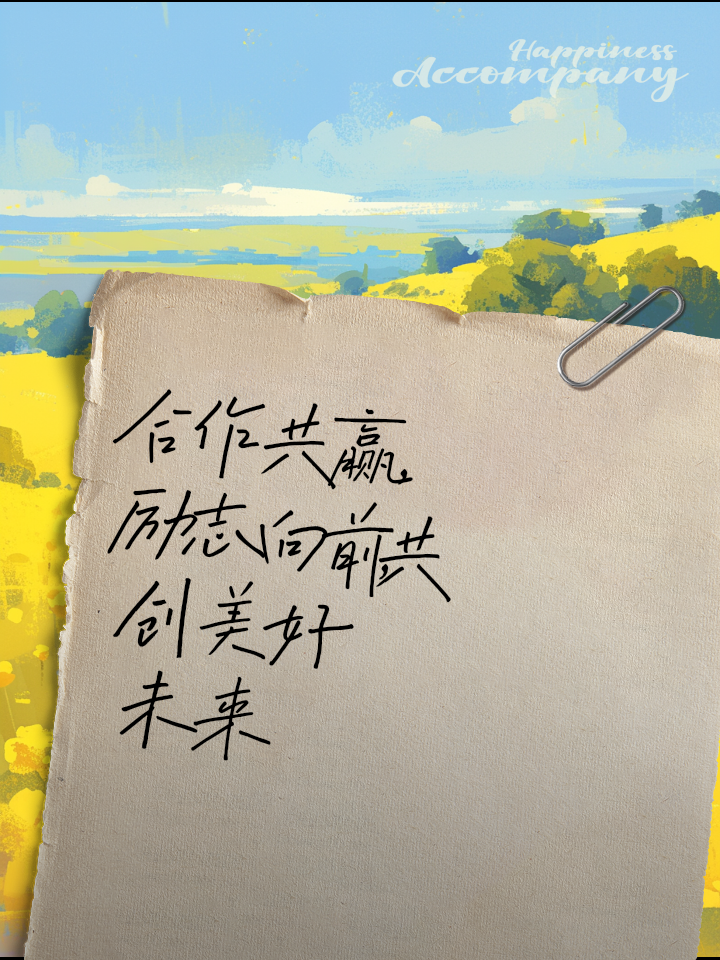 Happiness
Accompany
合作共赢
励志向前共
创美好
未来